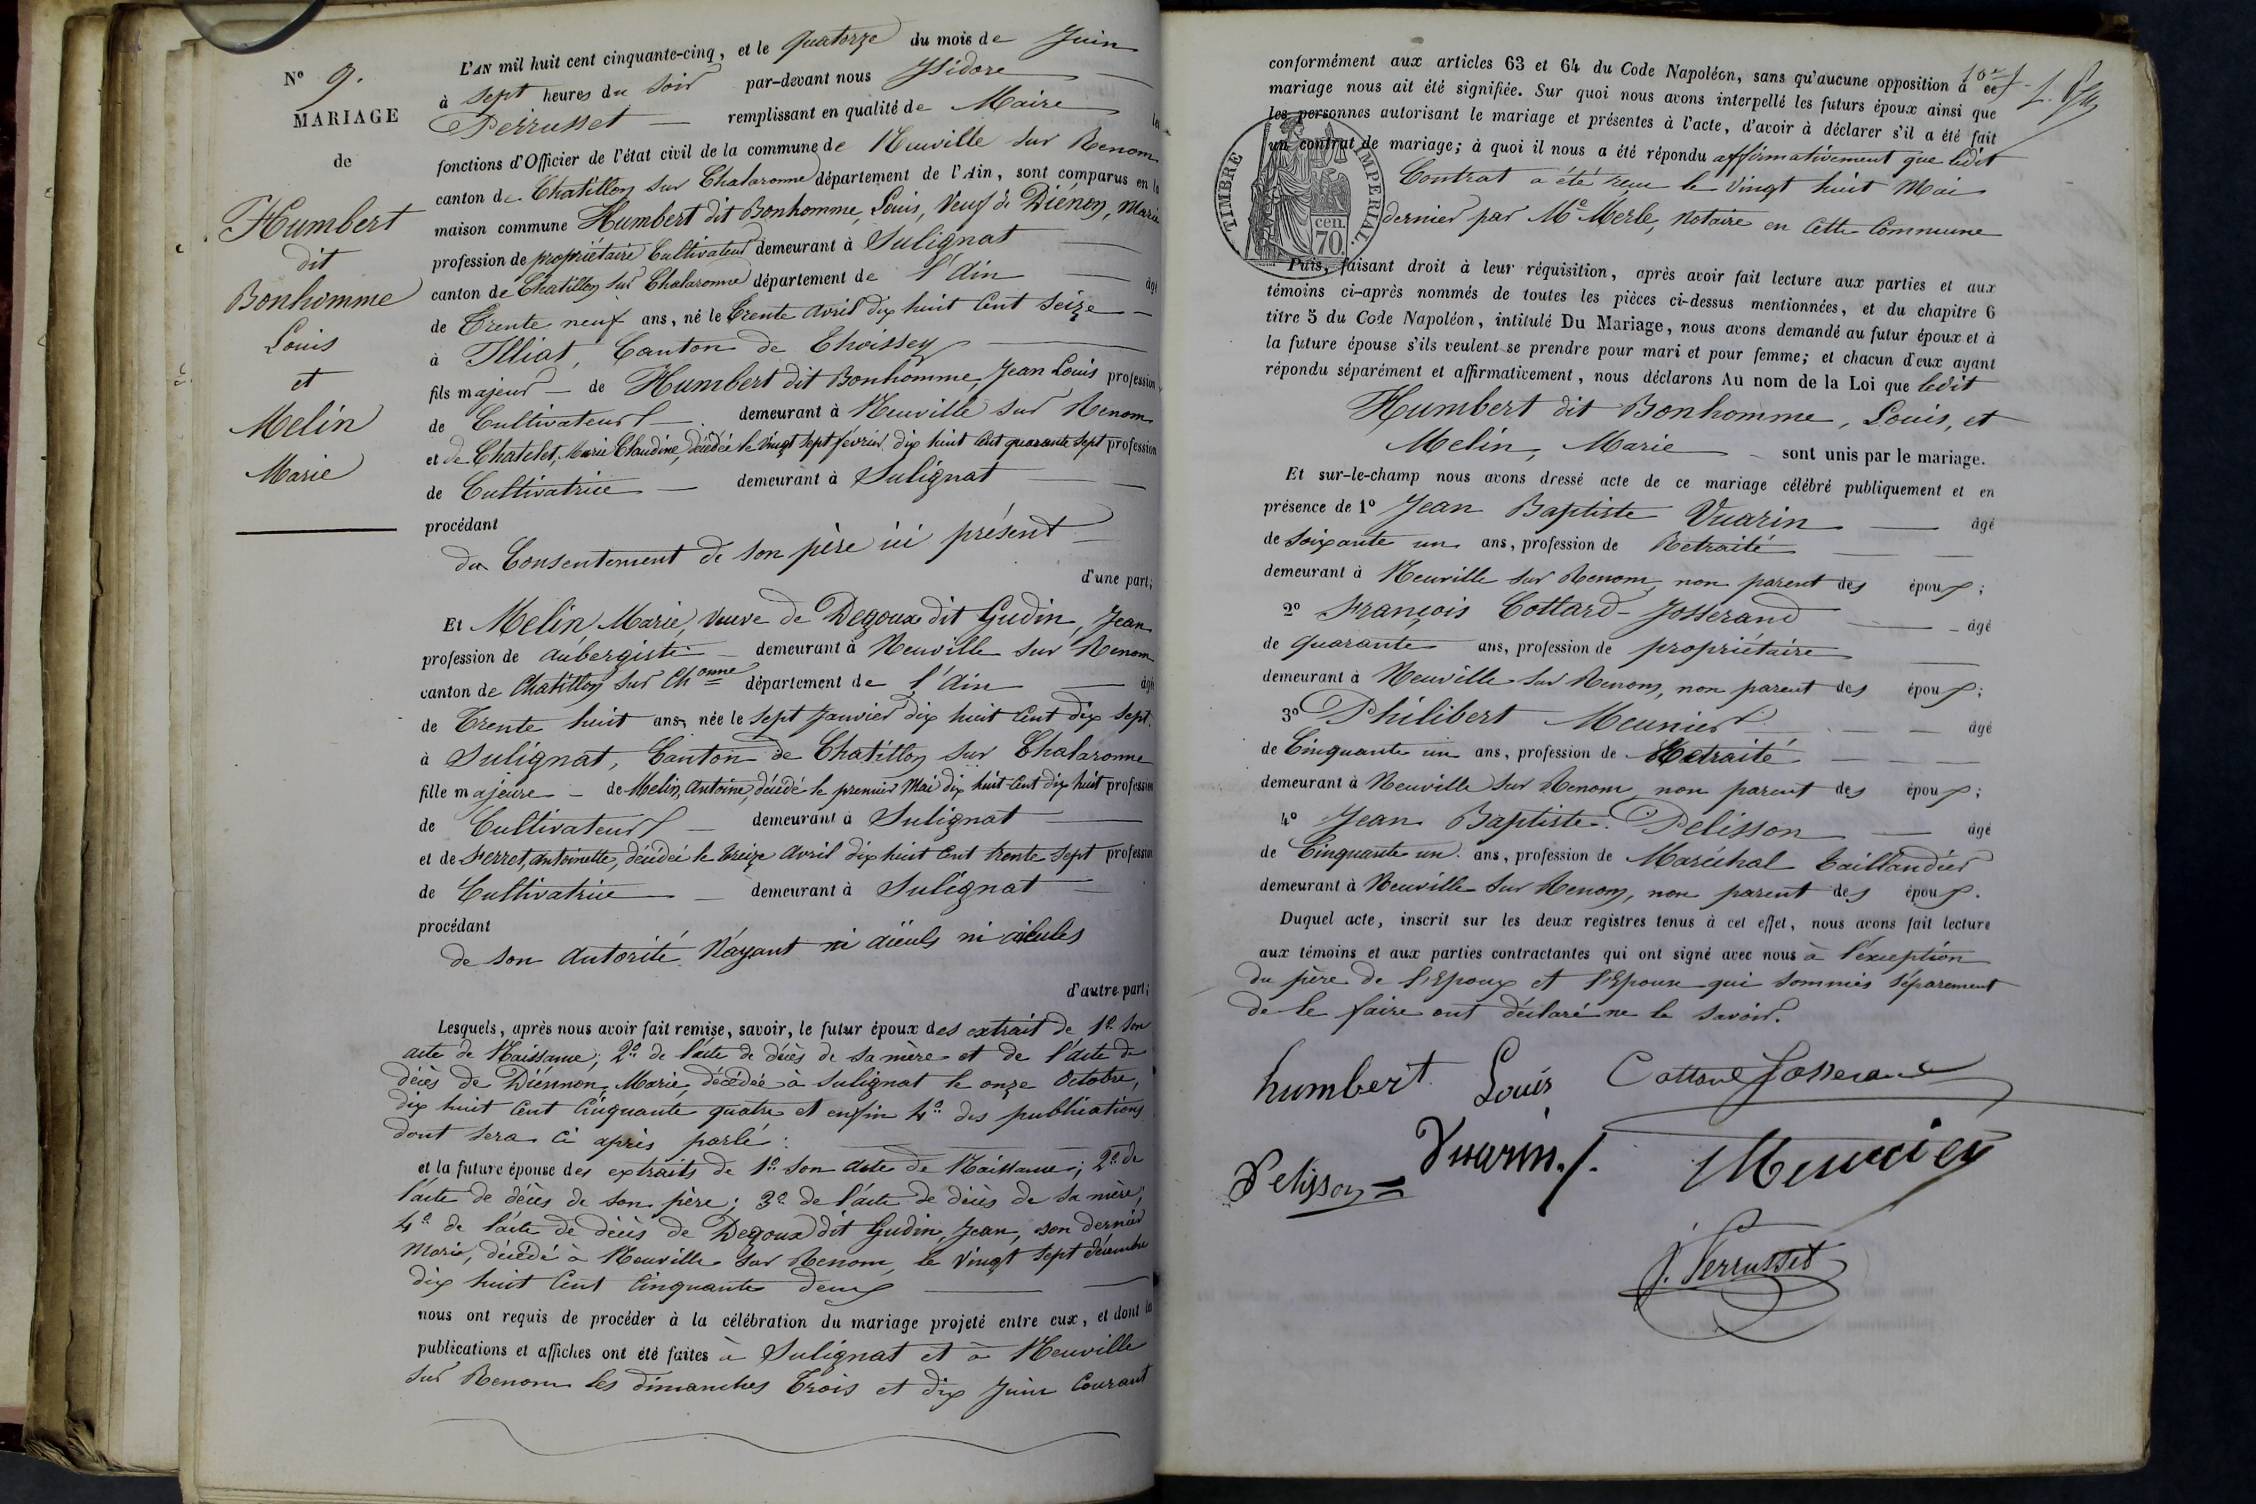 N° 9.
MARIAGE
de
Humbert
dit
Bonhomme
Louis
et
Melin
Marie
L'AN mil huit cent cinquante-cinq, et le quatorze du mois de Juin
à sept heures du soir par-devant nous Isidore
Perrusset remplissant en qualité de Maire les
fonctions d'Officier de l'état civil de la commune de Neuville sur Renom
canton de Chatillon sur Chalaronne département de l'Ain, sont comparus en la
maison commune Humbert dit Bonhomme, Louis, Veuf de Diénon, Marie
profession de propriétaire Cultivateur demeurant à Sulignat
canton de Chatillon sur Chalaronne département de l'Ain âgé
de Trente neuf ans, né le trente avril dix huit Cent Seize
à Illiat, Canton de Thoissey
fils majeur de Humbert dit Bonhomme, Jean Louis profession
de Cultivateur demeurant à Neuville sur Renom
et de Chatelet, Marie Claudine, décédée le vingt sept février dix huit Cent quarante sept profession
de Cultivatrice demeurant à Sulignat
procédant
du Consentement de son père ici présent
d'une part;
Et Melin Marie, veuve de Degoux dit Gudin, Jean
profession de aubergiste demeurant à Neuville sur Renom
canton de Chatillon sur Chonne département de l'Ain âgé
de Trente huit ans, née le sept Janvier dix huit Cent dix sept
à Sulignat, Canton de Chatillon sur Chalaronne
fille majeure de Melin, Antoine, décédé le premier Mai dix huit Cent dix huit profession
de Cultivateur demeurant à Sulignat
et de Ferret, Antoinette, décédée le treize avril dix huit Cent trente sept profession
de Cultivatrice demeurant à Sulignat
procédant
de son autorité N'ayant ni aïeuls ni aïeules
d'autre part;
Lesquels, après nous avoir fait remise, savoir, le futur époux des extrait de 1° son
acte de Naissance; 2° de l'acte de décès de sa mère et de l'acte de
décès de Diénnon, Marie, décédée à Sulignat le onze Octobre,
dix huit Cent Cinquante quatre et enfin 4° des publications
dont sera ci après parlé.
et la future épouse des extraits de 1° son acte de Naissance; 2° de
l'acte de décès de son père; 3° de l'acte de décès de sa mère;
4° de l'acte de décès de Degoux dit Gudin, Jean, son dernier
Mari, décédé à Neuville sur Renom, le Vingt sept décembre
dix huit Cent Cinquante deux
nous ont requis de procéder à la célébration du mariage projeté entre eux, et dont la
publications et affiches ont été faites à Sulignat et à Neuville
sur Renom les dimanches trois et dix Juin Courant
conformément aux articles 63 et 64 du Code Napoléon, sans qu'aucune opposition à ce
mariage nous ait été signifiée. Sur quoi nous avons interpellé les futurs époux ainsi que
les personnes autorisant le mariage et présentes à l'acte, d'avoir à déclarer s'il a été fait
un contrat de mariage; à quoi il nous a été répondu affirmativement que ledit
Contrat a été reçu le vingt huit Mai
dernier par Me Merle, Notaire en cette Commune
TIMBRE IMPERIAL.
cen.
70.
Puis, faisant droit à leur réquisition, après avoir fait lecture aux parties et aux
témoins ci-après nommés de toutes les pièces ci-dessus mentionnées, et du chapitre 6
titre 5 du Code Napoléon, intitulé Du Mariage, nous avons demandé au futur époux et à
la future épouse s'ils veulent se prendre pour mari et pour femme; et chacun d'eux ayant
répondu séparément et affirmativement, nous déclarons Au nom de la Loi que ledit
Humbert dit Bonhomme, Louis, et
Melin, Marie sont unis par le mariage.
Et sur-le-champ nous avons dressé acte de ce mariage célébré publiquement et en
présence de 1° Jean Baptiste Vuarin âgé
de soixante un ans, profession de Retraité
demeurant à Neuville sur Renom, non parent des époux;
2° François Cottard-Josserand âgé
de quarante ans, profession de propriétaire
demeurant à Neuville sur Renom, non parent des époux;
3° Philibert Meunier âgé
de Cinquante un ans, profession de Retraité
demeurant à Neuville sur Renom, non parent des époux;
4° Jean Baptiste Pelisson âgé
de Cinquante un ans, profession de Maréchal Taillandier
demeurant à Neuville sur Renom, non parent des époux.
Duquel acte, inscrit sur les deux registres tenus à cet effet, nous avons fait lecture
aux témoins et aux parties contractantes qui ont signé avec nous à l'exception
du père de l'Epoux et l'Epouse qui sommés séparement
de le faire ont déclaré ne le savoir.
humbert Louis Cottard Josserand
Pelisson Vuarin Meunier
J. Perrusset